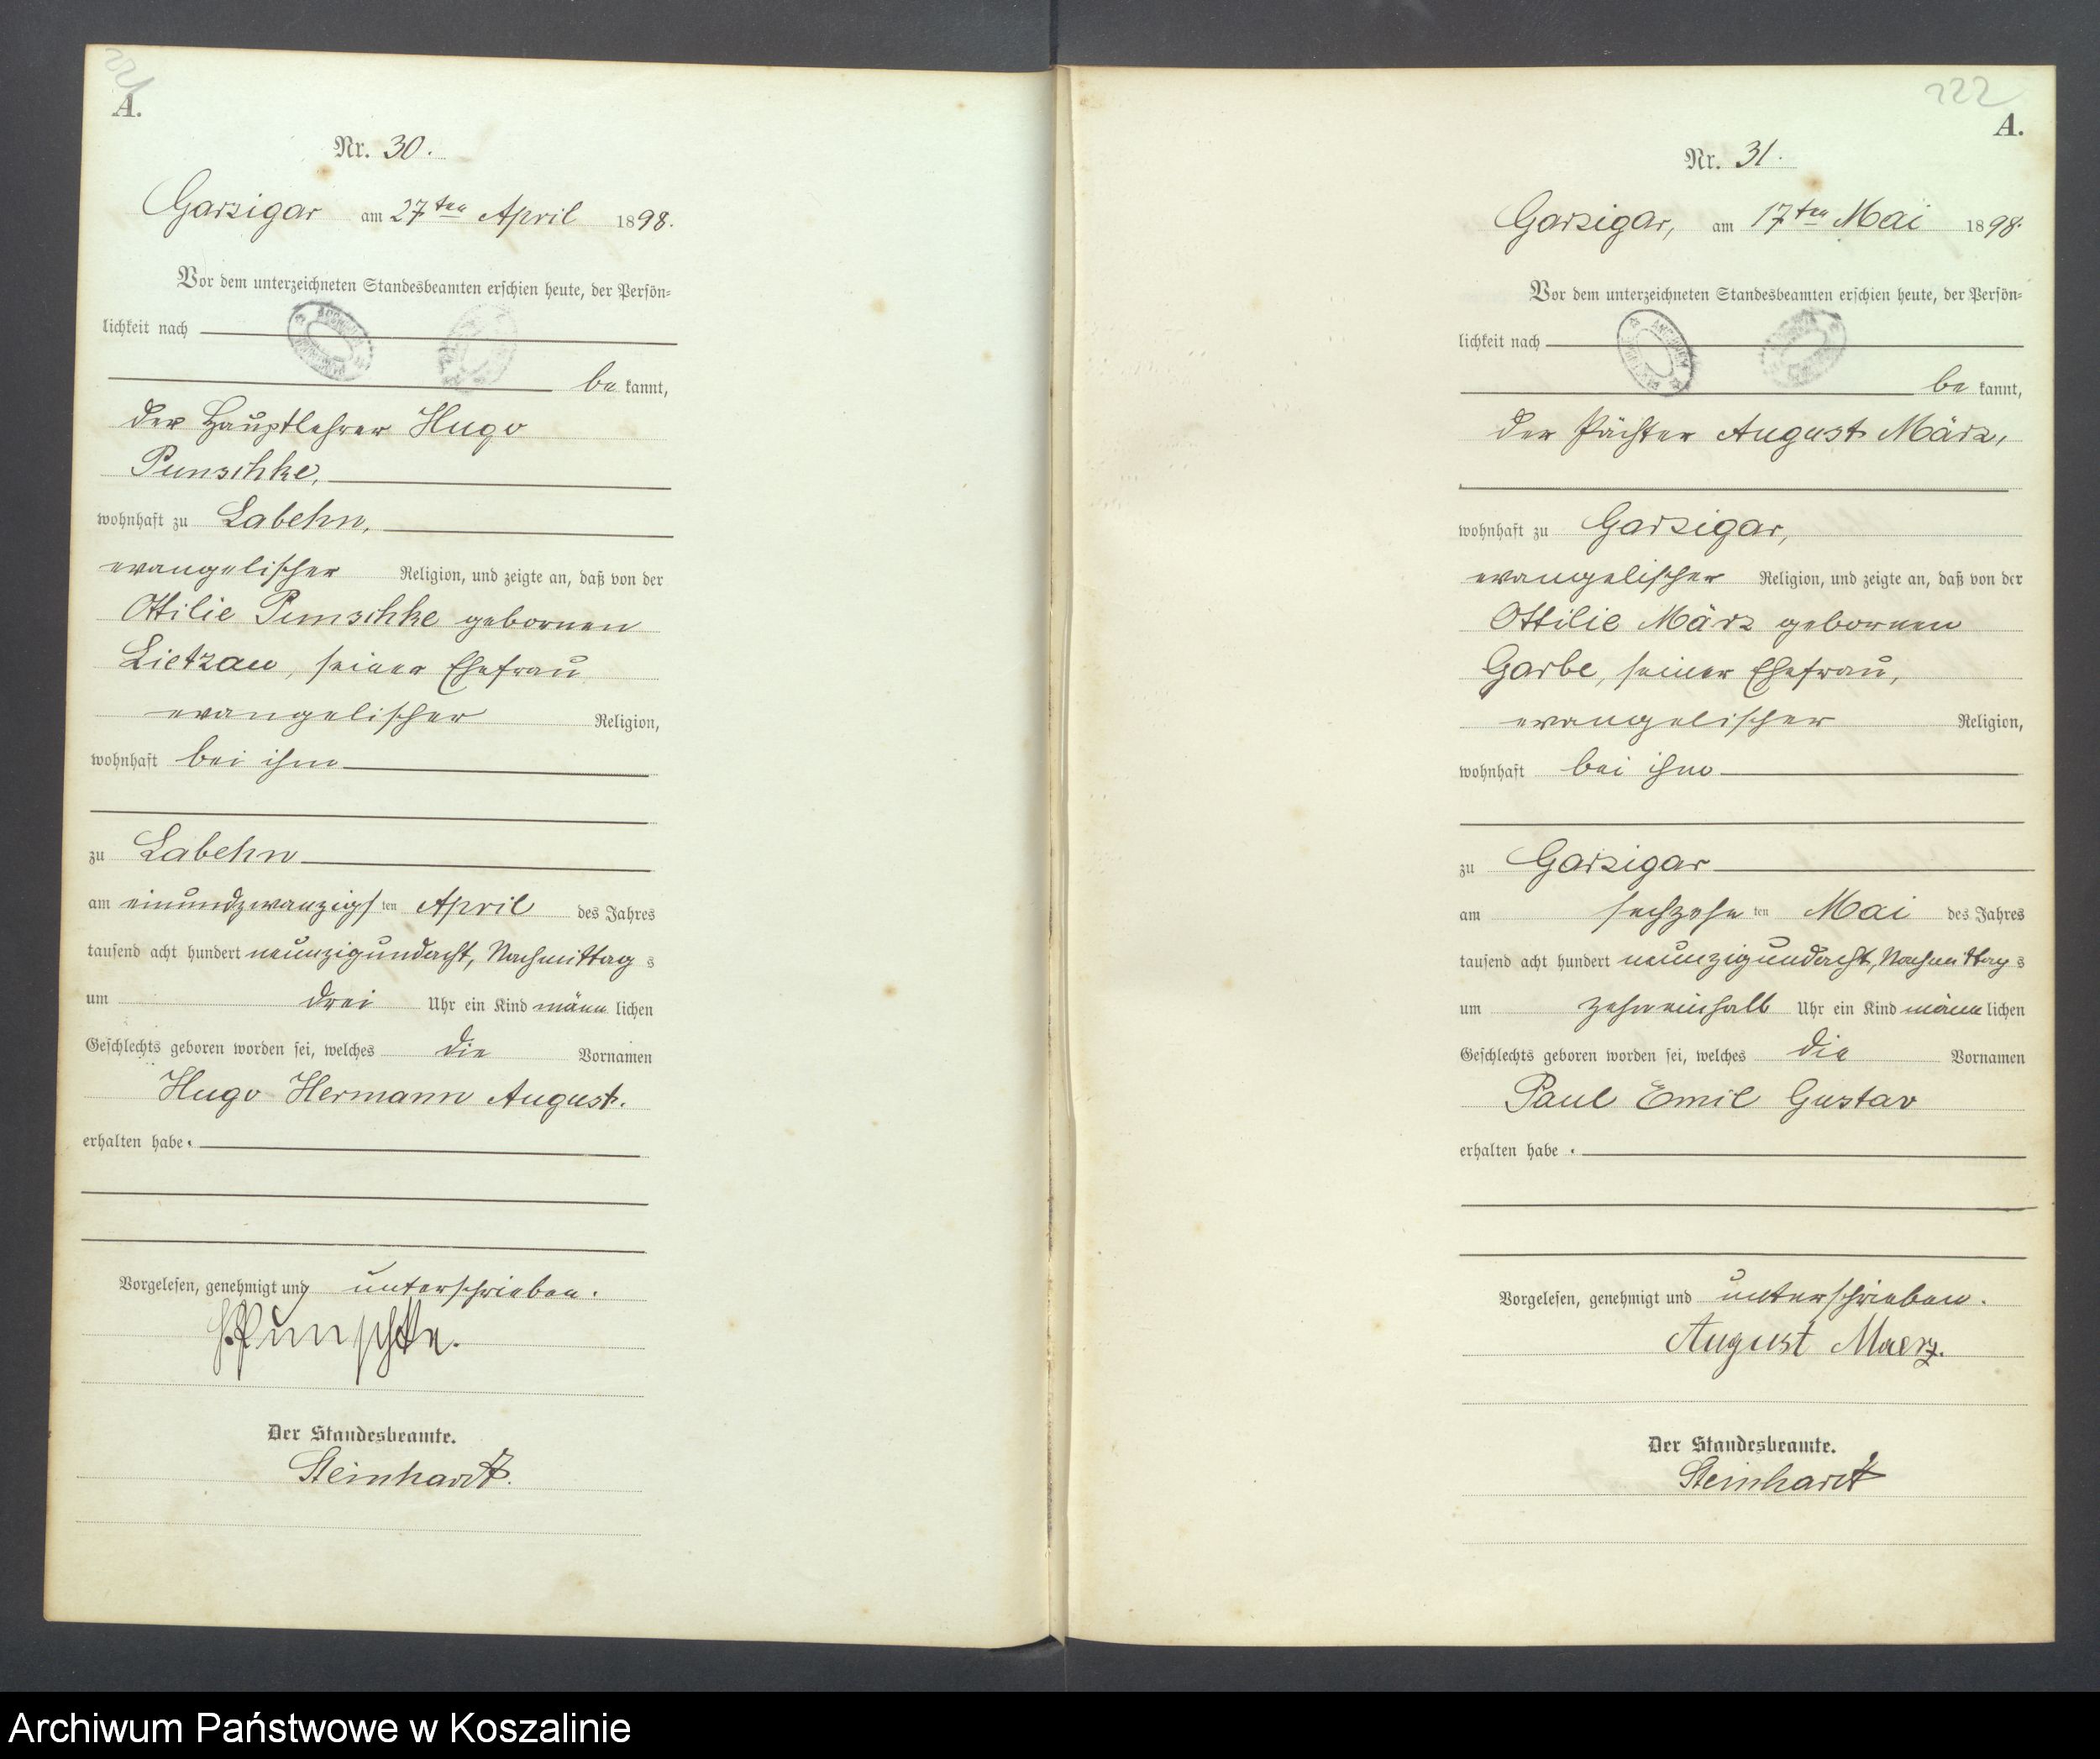 221
A.
Nr. 30.
Garzigar am 27ten April 1898.
Vor dem unterzeichneten Standesbeamten erschien heute, der Persön=
lichkeit nach
be kannt,
der Hauptlehrer Hugo
Punschke,
wohnhaft zu Labehn,
evangelischer Religion, und zeigte an, daß von der
Ottilie Punschke gebornen
Lietzau, seiner Ehefrau
evangelischer Religion,
wohnhaft bei ihm
zu Labehn
am einundzwanzigsten April des Jahres
tausend acht hundert neunzigundacht, Nachmittags
um drei Uhr ein Kind männlichen
Geschlechts geboren worden sei, welches die Vornamen
Hugo Hermann August.
erhalten habe.
Vorgelesen, genehmigt und unterschrieben.
H. Punschke.
Der Standesbeamte.
Steinhardt.
222
A.
Nr. 31.
Garzigar, am 17ten Mai 1898.
Vor dem unterzeichneten Standesbeamten erschien heute, der Persön=
lichkeit nach
be kannt,
der Pächter August März,
wohnhaft zu Garzigar,
evangelischer Religion, und zeigte an, daß von der
Ottilie März gebornen
Garbe, seiner Ehefrau,
evangelischer Religion,
wohnhaft bei ihm
zu Garzigar
am sechzehnten Mai des Jahres
tausend acht hundert neunzigundacht, Nachmittags
um zehneinhalb Uhr ein Kind männlichen
Geschlechts geboren worden sei, welches die Vornamen
Paul Emil Gustav
erhalten habe.
Vorgelesen, genehmigt und unterschrieben.
August Maerz.
Der Standesbeamte.
Steinhardt
Archiwum Państwowe w Koszalinie